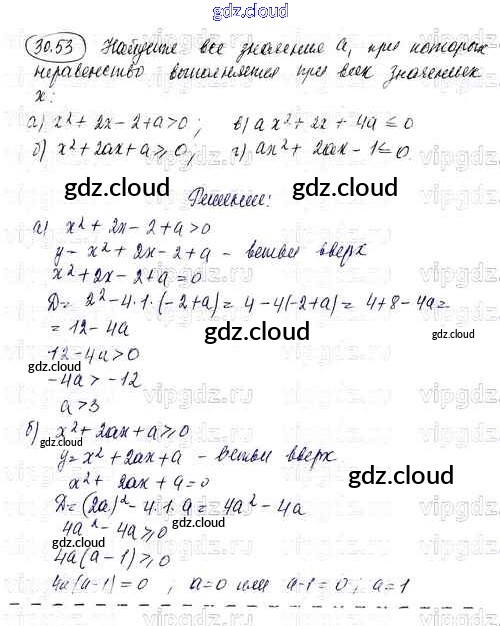 gdz.cloud
30.53 Найдите все значения а, при которых
неравенство выполняется при всех значениях
х:
а) x² + 2x - 2 + a > 0; в) ax² + 2x + 4a ≤ 0
б) x² + 2ax + a ≥ 0; г) ax² + 2ax - 1 ≤ 0.
gdz.cloud gdz.cloud
Решение:
а) x² + 2x - 2 + a > 0
y = x² + 2x - 2 + a - ветви вверх
x² + 2x - 2 + a = 0
D = 2² - 4·1·(-2+a) = 4 - 4(-2+a) = 4 + 8 - 4a =
= 12 - 4a
gdz.cloud
12 - 4a > 0
-4a > -12
a > 3
gdz.cloud
б) x² + 2ax + a ≥ 0
y = x² + 2ax + a - ветви вверх
gdz.cloud
x² + 2ax + a = 0
D = (2a)² - 4·1·a = 4a² - 4a
4a² - 4a ≥ 0
gdz.cloud
4a(a-1) ≥ 0
4a(a-1) = 0, a=0 или a-1=0; a=1